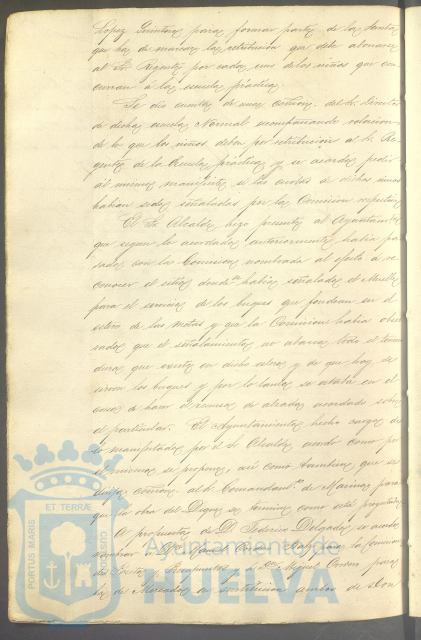 Lopez Quintero para formar parte de la Junta
que ha de marcar la retribucion que debe abonarse
al Sr. Regente por cada uno de los niños que con
curran á la escuela práctica.
Se dió cuenta de una comon. del Sr. Director
de dicha escuela Normal acompañando relacion
de lo que los niños deben por retribucion al Sr. Re
gente de la Escuela práctica y se acordó pedir
al mismo manifieste si las cuotas de dichos niños
habian sido señaladas por la Comision respectiva
El Sr. Alcalde hizo presente al Ayuntamiento
que segun lo acordado anteriormente habia pa
sado con la Comision nombrada al efecto á re
conocer el sitio donde habia señalado el Muelle
para el servicio de los buques que fondean en el
estero de las Metas y que la Comision habia obser
vado que el señalamiento no abarca todo el
que existe en dicho estero y de que hoy se
sirven los buques y por lo tanto se estaba en el
caso de hacer el recurso de alzada acordado sobre
el particular. El Ayuntamiento hecho cargo de
lo manifestado por el Sr. Alcalde acordó como por
el mismo se propone, así como tambien que se
dirija comon. al Sr. Comandante de Marina para
que la obra del Dique se termine como está proyectada
A propuesta de D. Federico Delgado se acordó
nombrar á D. Manuel para la Comision
de y Reglamentos y á D. Miguel para
la de Mercados en sustitucion ambos de Don
PORTUS MARIS
ET TERRÆ
CUSTODIA
Ayuntamiento de
HUELVA